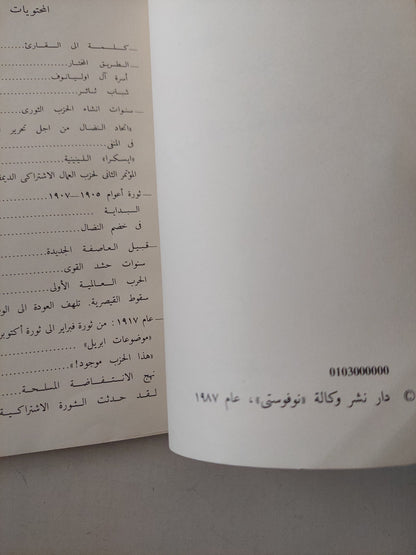 المحتويات
كلمة الى القارئ
الطريق المختار
أسرة آل اوليانوف
شباب ثائر
سنوات انشاء الحزب الثورى
«اتحاد النضال من اجل تحرير
فى المنفى
«ايسكرا» اللينينية
المؤتمر الثانى لحزب العمال الاشتراكى
ثورة أعوام ١٩٠٥—١٩٠٧
البداية
فى خضم النضال
قبيل العاصفة الجديدة
سنوات حشد القوى
الحرب العالمية الأولى
سقوط القيصرية. تلهف العودة الى
عام ١٩١٧: من ثورة فبراير الى ثورة أكتوبر
«موضوعات ابريل»
«هذا الحزب موجود!»
نهج الانتفاضة المسلحة
لقد حدثت الثورة الاشتراكية
0103000000
© دار نشر وكالة «نوفوستى»، عام ١٩٨٧